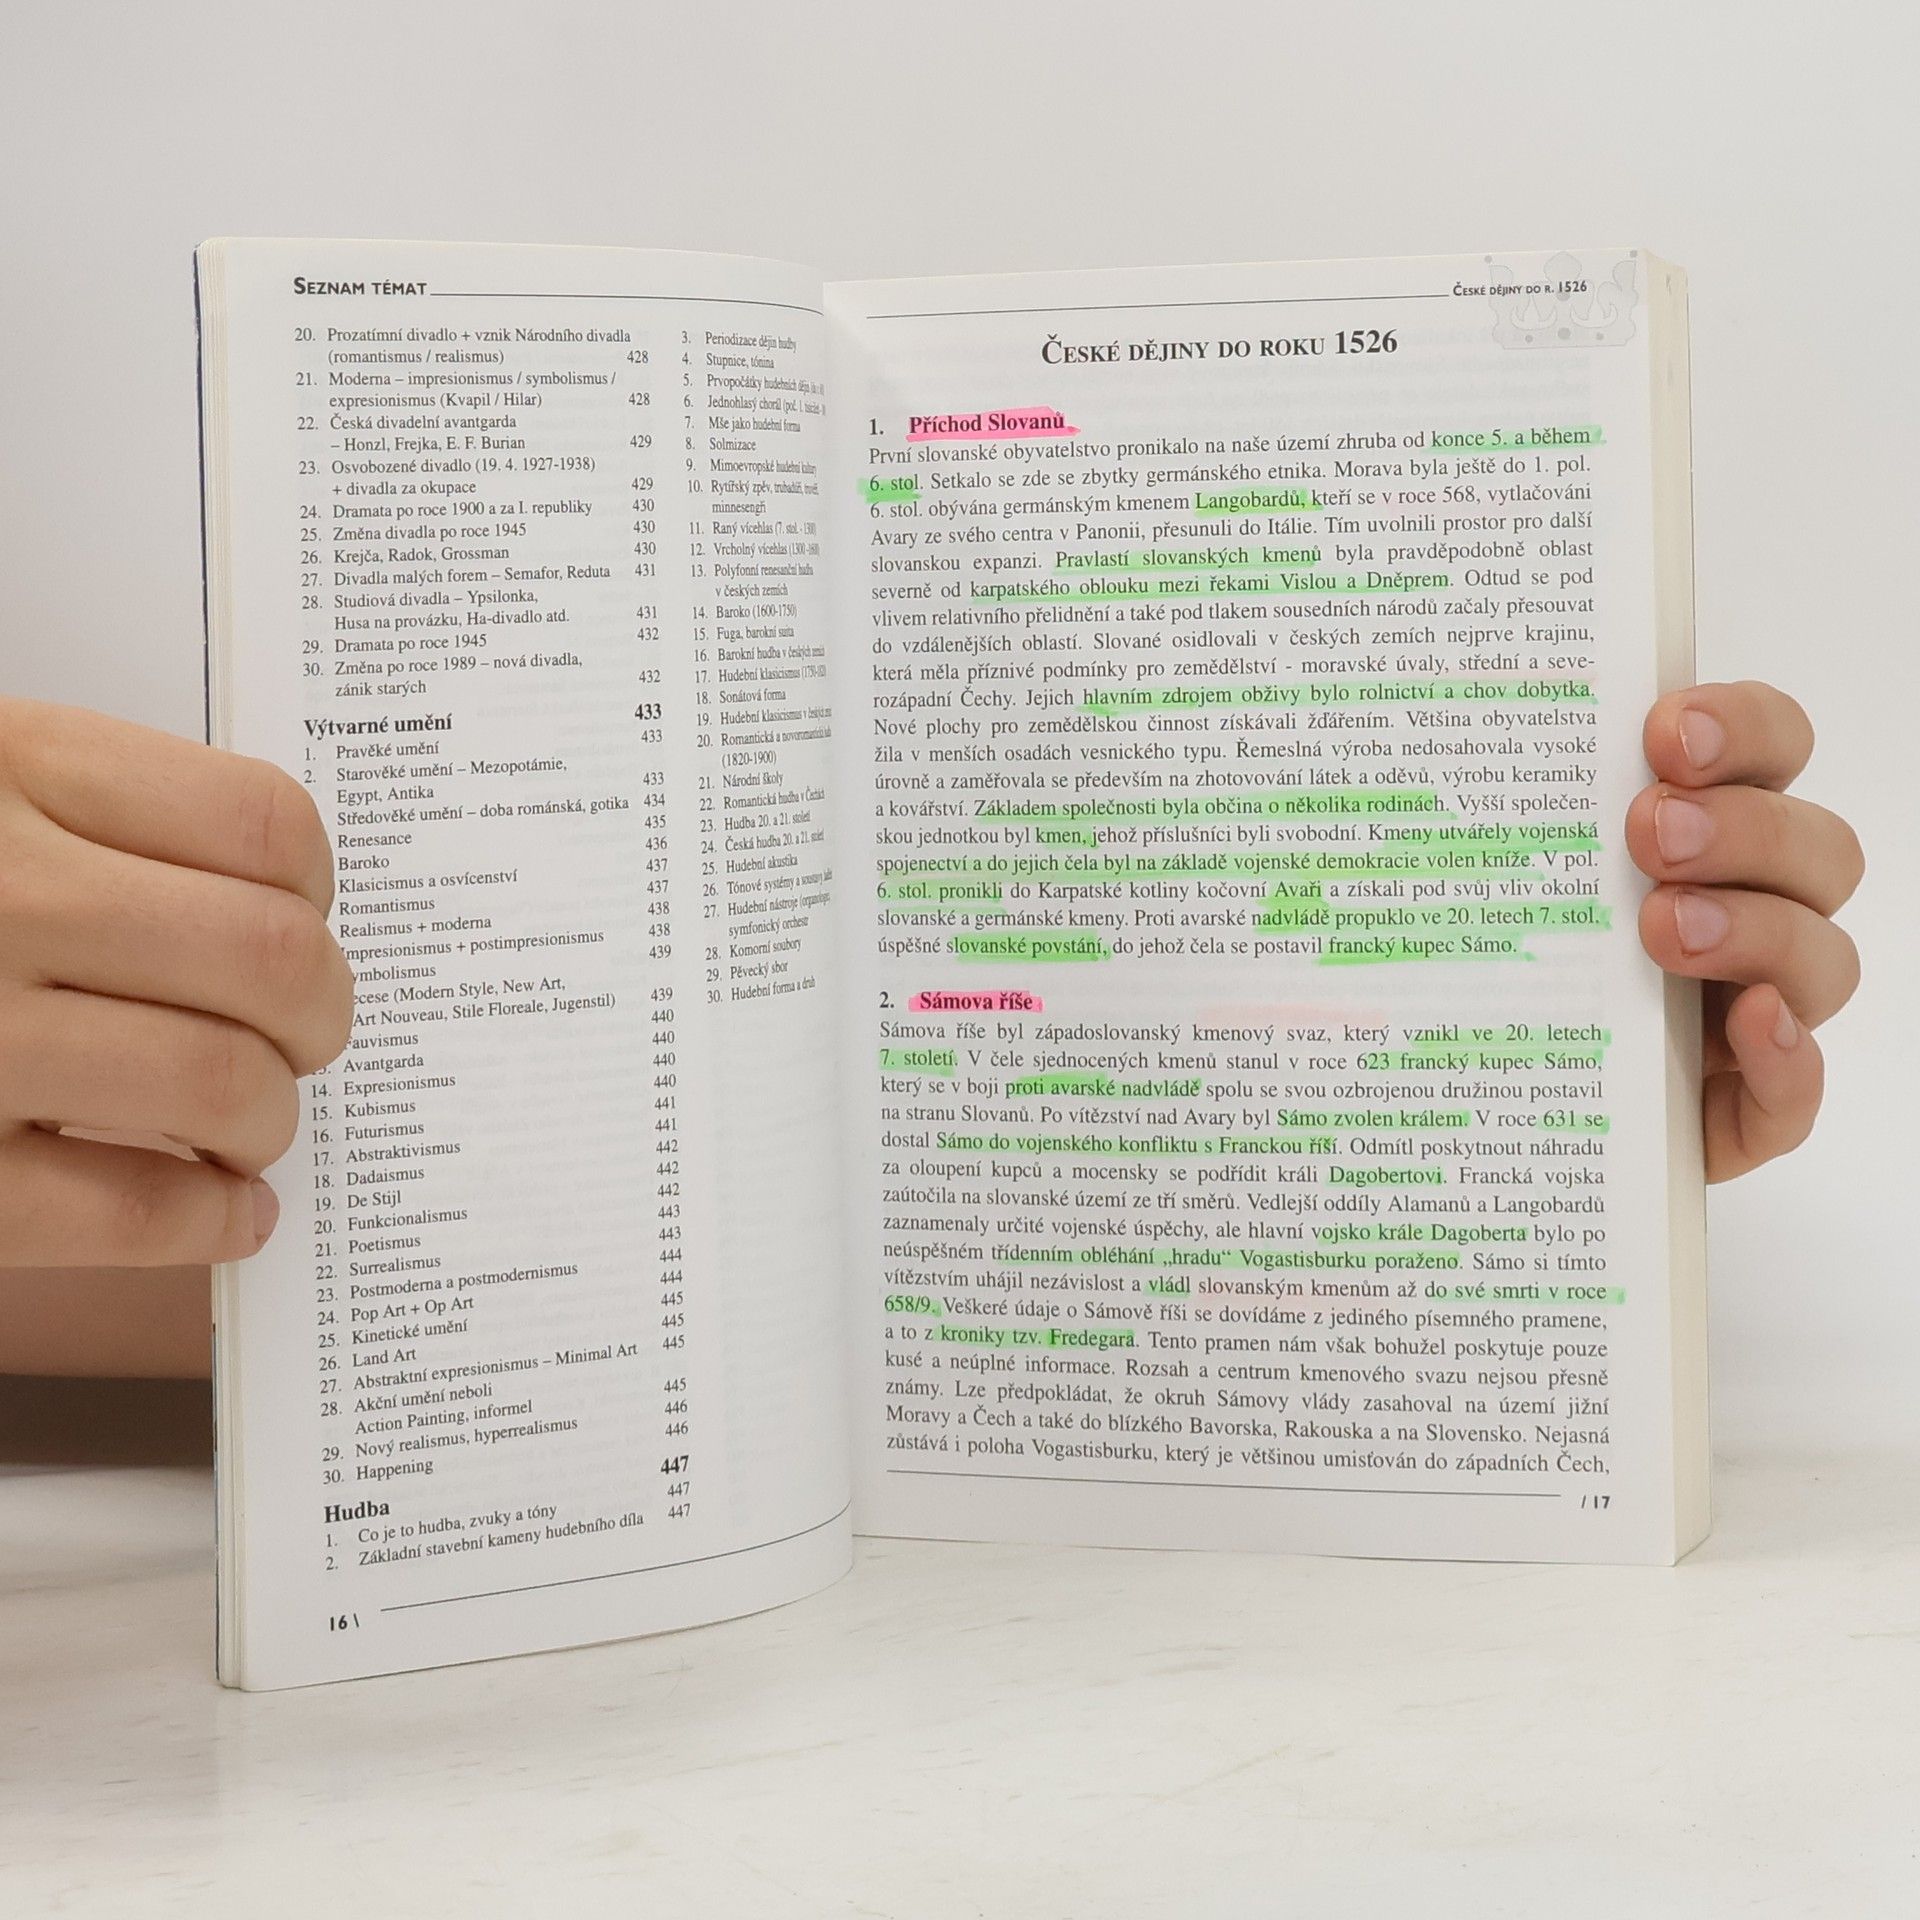 SEZNAM TÉMAT
20. Prozatímní divadlo + vznik Národního divadla
(romantismus / realismus) 428
21. Moderna – impresionismus / symbolismus /
expresionismus (Kvapil / Hilar) 428
22. Česká divadelní avantgarda
– Honzl, Frejka, E. F. Burian 429
23. Osvobozené divadlo (19. 4. 1927-1938)
+ divadla za okupace 429
24. Dramata po roce 1900 a za I. republiky 430
25. Změna divadla po roce 1945 430
26. Krejča, Radok, Grossman 430
27. Divadla malých forem – Semafor, Reduta 431
28. Studiová divadla – Ypsilonka,
Husa na provázku, Ha-divadlo atd. 431
29. Dramata po roce 1945 432
30. Změna po roce 1989 – nová divadla,
zánik starých 432
Výtvarné umění 433
1. Pravěké umění 433
2. Starověké umění – Mezopotámie,
Egypt, Antika 433
Středověké umění – doba románská, gotika 434
Renesance 435
Baroko 436
Klasicismus a osvícenství 437
Romantismus 437
Realismus + moderna 438
Impresionismus + postimpresionismus 438
ymbolismus 439
ecese (Modern Style, New Art,
Art Nouveau, Stile Floreale, Jugenstil) 439
Fauvismus 440
13. Avantgarda 440
14. Expresionismus 440
15. Kubismus 440
16. Futurismus 441
17. Abstraktivismus 441
18. Dadaismus 442
19. De Stijl 442
20. Funkcionalismus 442
21. Poetismus 443
22. Surrealismus 443
23. Postmoderna a postmodernismus 444
24. Pop Art + Op Art 444
25. Kinetické umění 445
26. Land Art 445
27. Abstraktní expresionismus – Minimal Art 445
28. Akční umění neboli
Action Painting, informel 445
29. Nový realismus, hyperrealismus 446
30. Happening 446
Hudba 447
1. Co je to hudba, zvuky a tóny 447
2. Základní stavební kameny hudebního díla 447
3. Periodizace dějin hudby
4. Stupnice, tónina
5. Prvopočátky hudebních dějin
6. Jednohlasý chorál (poč. 1.
7. Mše jako hudební forma
8. Solmizace
9. Mimoevropské hudební kultury
10. Rytířský zpěv, trubadúři,
minnesengři
11. Raný vícehlas (7. stol. - 1300)
12. Vrcholný vícehlas (1300-1600)
13. Polyfonní renesanční hudba
v českých zemích
14. Baroko (1600-1750)
15. Fuga, barokní suita
16. Barokní hudba v českých zemích
17. Hudební klasicismus (1750-1820)
18. Sonátová forma
19. Hudební klasicismus v českých
20. Romantická a novoromantická
(1820-1900)
21. Národní školy
22. Romantická hudba v Čechách
23. Hudba 20. a 21. století
24. Česká hudba 20. a 21. století
25. Hudební akustika
26. Tónové systémy a soustavy
27. Hudební nástroje (organologie)
symfonický orchestr
28. Komorní soubory
29. Pěvecký sbor
30. Hudební forma a druh
16 \
ČESKÉ DĚJINY DO R. 1526
ČESKÉ DĚJINY DO ROKU 1526
1. Příchod Slovanů
První slovanské obyvatelstvo pronikalo na naše území zhruba od konce 5. a během
6. stol. Setkalo se zde se zbytky germánského etnika. Morava byla ještě do 1. pol.
6. stol. obývána germánským kmenem Langobardů, kteří se v roce 568, vytlačováni
Avary ze svého centra v Panonii, přesunuli do Itálie. Tím uvolnili prostor pro další
slovanskou expanzi. Pravlastí slovanských kmenů byla pravděpodobně oblast
severně od karpatského oblouku mezi řekami Vislou a Dněprem. Odtud se pod
vlivem relativního přelidnění a také pod tlakem sousedních národů začaly přesouvat
do vzdálenějších oblastí. Slované osidlovali v českých zemích nejprve krajinu,
která měla příznivé podmínky pro zemědělství - moravské úvaly, střední a seve-
rozápadní Čechy. Jejich hlavním zdrojem obživy bylo rolnictví a chov dobytka.
Nové plochy pro zemědělskou činnost získávali žďářením. Většina obyvatelstva
žila v menších osadách vesnického typu. Řemeslná výroba nedosahovala vysoké
úrovně a zaměřovala se především na zhotovování látek a oděvů, výrobu keramiky
a kovářství. Základem společnosti byla občina o několika rodinách. Vyšší společen-
skou jednotkou byl kmen, jehož příslušníci byli svobodní. Kmeny utvářely vojenská
spojenectví a do jejich čela byl na základě vojenské demokracie volen kníže. V pol.
6. stol. pronikli do Karpatské kotliny kočovní Avaři a získali pod svůj vliv okolní
slovanské a germánské kmeny. Proti avarské nadvládě propuklo ve 20. letech 7. stol.
úspěšné slovanské povstání, do jehož čela se postavil francký kupec Sámo.
2. Sámova říše
Sámova říše byl západoslovanský kmenový svaz, který vznikl ve 20. letech
7. století. V čele sjednocených kmenů stanul v roce 623 francký kupec Sámo,
který se v boji proti avarské nadvládě spolu se svou ozbrojenou družinou postavil
na stranu Slovanů. Po vítězství nad Avary byl Sámo zvolen králem. V roce 631 se
dostal Sámo do vojenského konfliktu s Franckou říší. Odmítl poskytnout náhradu
za oloupení kupců a mocensky se podřídit králi Dagobertovi. Francká vojska
zaútočila na slovanské území ze tří směrů. Vedlejší oddíly Alamanů a Langobardů
zaznamenaly určité vojenské úspěchy, ale hlavní vojsko krále Dagoberta bylo po
neúspěšném třídenním obléhání „hradu“ Vogastisburku poraženo. Sámo si tímto
vítězstvím uhájil nezávislost a vládl slovanským kmenům až do své smrti v roce
658/9. Veškeré údaje o Sámově říši se dovídáme z jediného písemného pramene,
a to z kroniky tzv. Fredegara. Tento pramen nám však bohužel poskytuje pouze
kusé a neúplné informace. Rozsah a centrum kmenového svazu nejsou přesně
známy. Lze předpokládat, že okruh Sámovy vlády zasahoval na území jižní
Moravy a Čech a také do blízkého Bavorska, Rakouska a na Slovensko. Nejasná
zůstává i poloha Vogastisburku, který je většinou umisťován do západních Čech,
/ 17